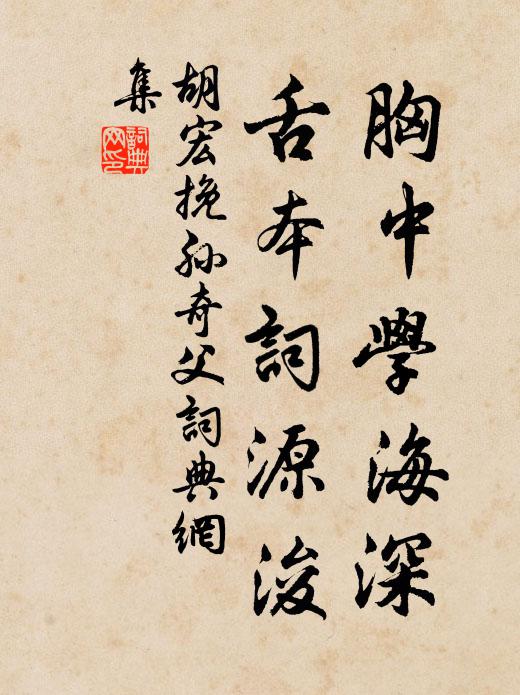 胸中學海深
舌本詞源浚
胡宏挽孫奇父詞典網
集
詞典網印